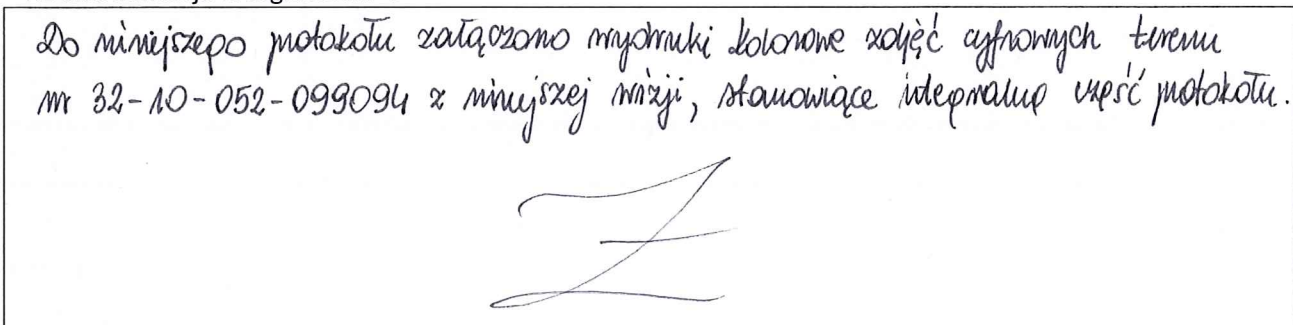 Do niniejszego protokołu załączono wydruki kolorowe zdjęć cyfrowych terenu
nr 32-10-052-099094 z niniejszej wizji, stanowiące integralną część protokołu.